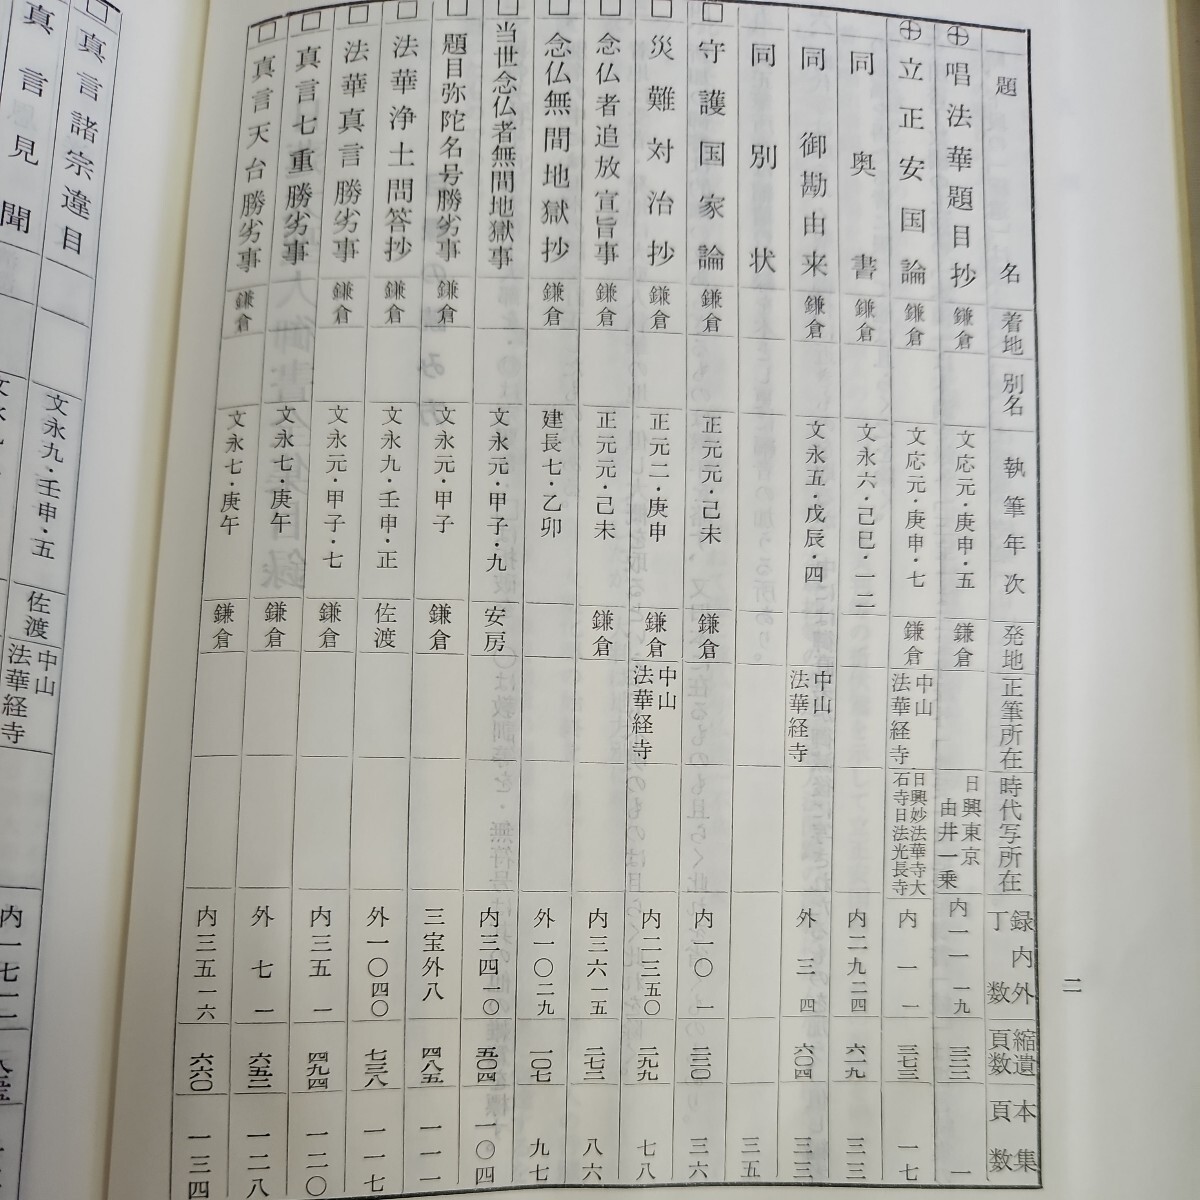 題名 着地 別名 執筆年次 発地 正筆所在 時代写所在 録内外丁数 縮遺頁数 本集頁数
⊕ 唱法華題目抄 鎌倉 文応元・庚申・五 鎌倉 日興東京由井一乗 内一一 一九 三三三 一
⊕ 立正安国論 鎌倉 文応元・庚申・七 鎌倉 中山法華経寺 日興妙法華寺大石寺日法光長寺 内一 一 三七三 一七
同奥書 文永六・己巳・一二 内二九 二四 六一九 三三
同御勘由来 鎌倉 文永五・戊辰・四 中山法華経寺 外三 四 六〇四 三三
同別状 三五
□ 守護国家論 鎌倉 正元元・己未 鎌倉 内一〇 一 二三〇 三六
□ 災難対治抄 鎌倉 正元二・庚申 鎌倉 中山法華経寺 内二三 五〇 二九九 七八
□ 念仏者追放宣旨事 鎌倉 正元元・己未 鎌倉 内三六 一五 二七二 八六
□ 念仏無間地獄抄 鎌倉 建長七・乙卯 外一〇 二九 一〇七 九七
□ 当世念仏者無間地獄事 文永元・甲子・九 安房 内三四 一〇 五〇四 一〇四
□ 題目弥陀名号勝劣事 鎌倉 文永元・甲子 鎌倉 三宝外八 四八五 一一一
□ 法華浄土問答抄 鎌倉 文永九・壬申・正 佐渡 外一〇 四〇 七三八 一一七
□ 法華真言勝劣事 鎌倉 文永元・甲子・七 鎌倉 内三五 一 四九四 一二〇
□ 真言七重勝劣事 文永七・庚午 鎌倉 外七 一 六五二 一二八
□ 真言天台勝劣事 鎌倉 文永七・庚午 鎌倉 内三五 一六 六六〇 一三四
二
□ 真言諸宗違目 文永九・壬申・五 佐渡 中山法華経寺 内一七 二二
真言見聞